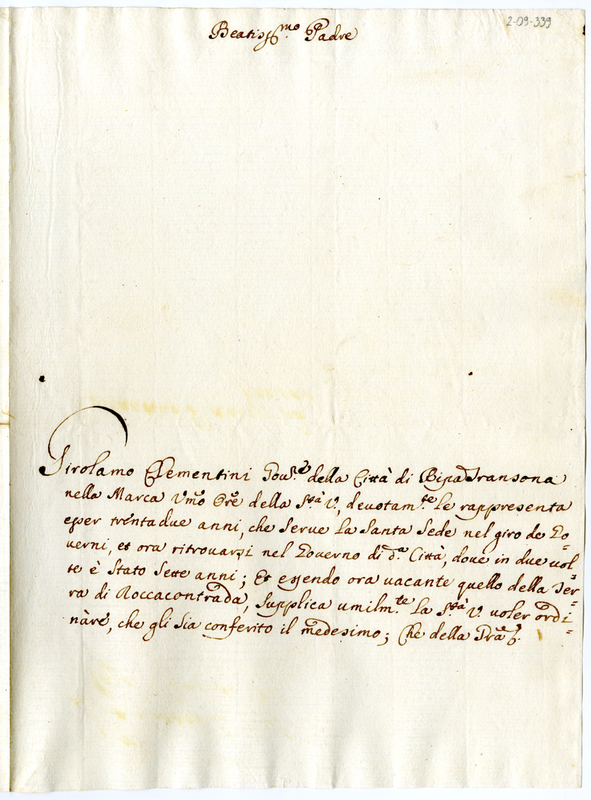 2-09-339
Beatiss.mo Padre
Girolamo Clementini Gov.re della Città di Ripatransona
nella Marca Umo Ore della S.tà V. devotam.te le rappresenta
esser trentadue anni, che serve La Santa Sede nel giro de Go=
verni, et ora ritrovarsi nel Governo di d.a Città, dove in due vol=
te è stato sette anni; Et essendo ora vacante quello della Ser=
ra di Roccacontrada, supplica umilm.te La S.tà V. voler ordi=
nare, che gli sia conferito il medesimo; Che della Gra